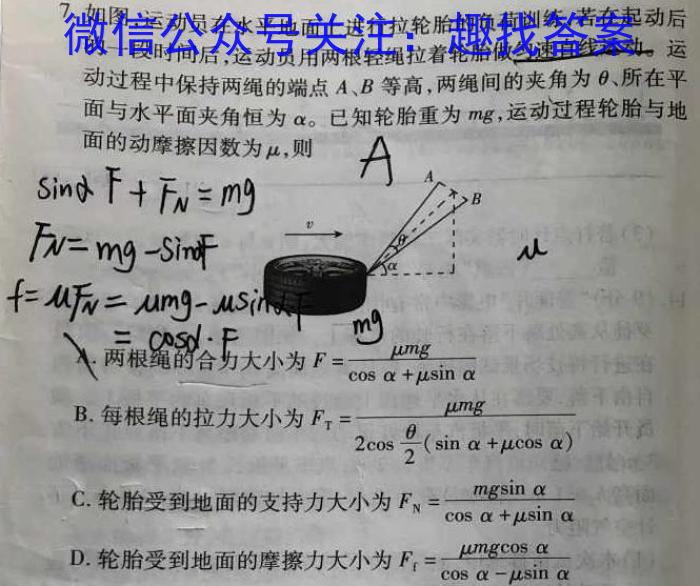 7. 如图,运动员在水平地面上进行拉轮胎的负荷训练,若在起动后
微信公众号关注：趣找答案
一段时间后,运动员用两根轻绳拉着轮胎做匀速直线运动。运
动过程中保持两绳的端点 A、B 等高,两绳间的夹角为 θ、所在平
面与水平面夹角恒为 α。已知轮胎重为 mg,运动过程轮胎与地
面的动摩擦因数为 μ,则
A
sinα F + F_N = mg
A
B
F_N = mg - sinαF
v
θ
α
μ
f = μF_N = μmg - μsinαF
= cosα · F
mg
A. 两根绳的合力大小为 F = μmg / (cos α + μsin α)
B. 每根绳的拉力大小为 F_T = μmg / (2cos θ/2 (sin α + μcos α))
C. 轮胎受到地面的支持力大小为 F_N = mgsin α / (cos α + μsin α)
D. 轮胎受到地面的摩擦力大小为 F_f = μmgcos α / (cos α - μsin α)